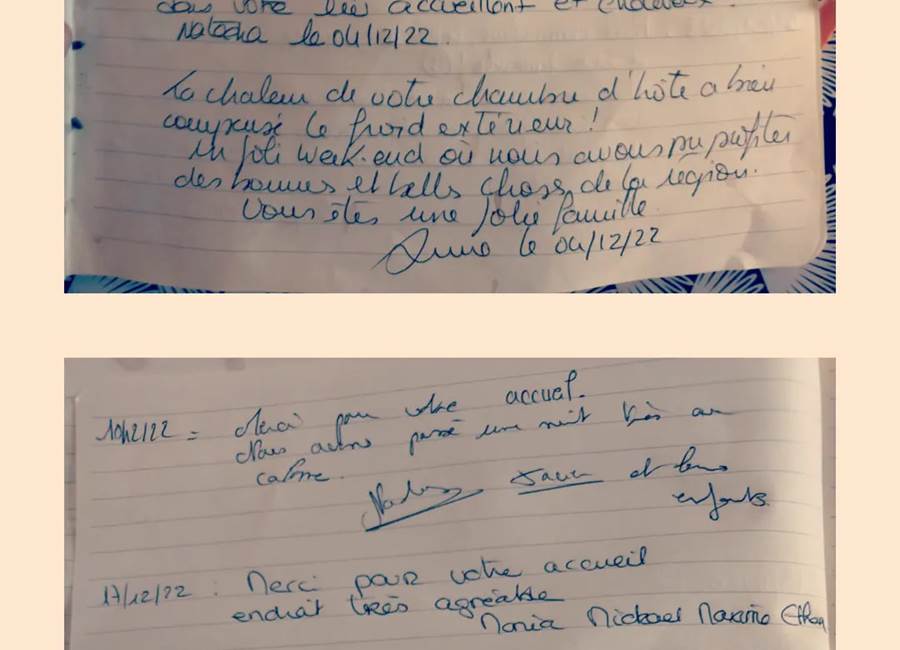 dans votre lieu accueillant et chaleureux.
Natacha le 04/12/22.
La chaleur de votre chambre d'hôte a bien
compensé le froid extérieur !
un joli week-end où nous avons pu profiter
des bonnes et belles choses de la région.
Vous êtes une jolie famille
le 04/12/22
10/12/22 = Merci pour votre accueil.
Nous avons passé une nuit très au
calme.
et leurs
enfants.
17/12/22 : Merci pour votre accueil
endroit très agréable
Maria Mickael Maxime Ethan